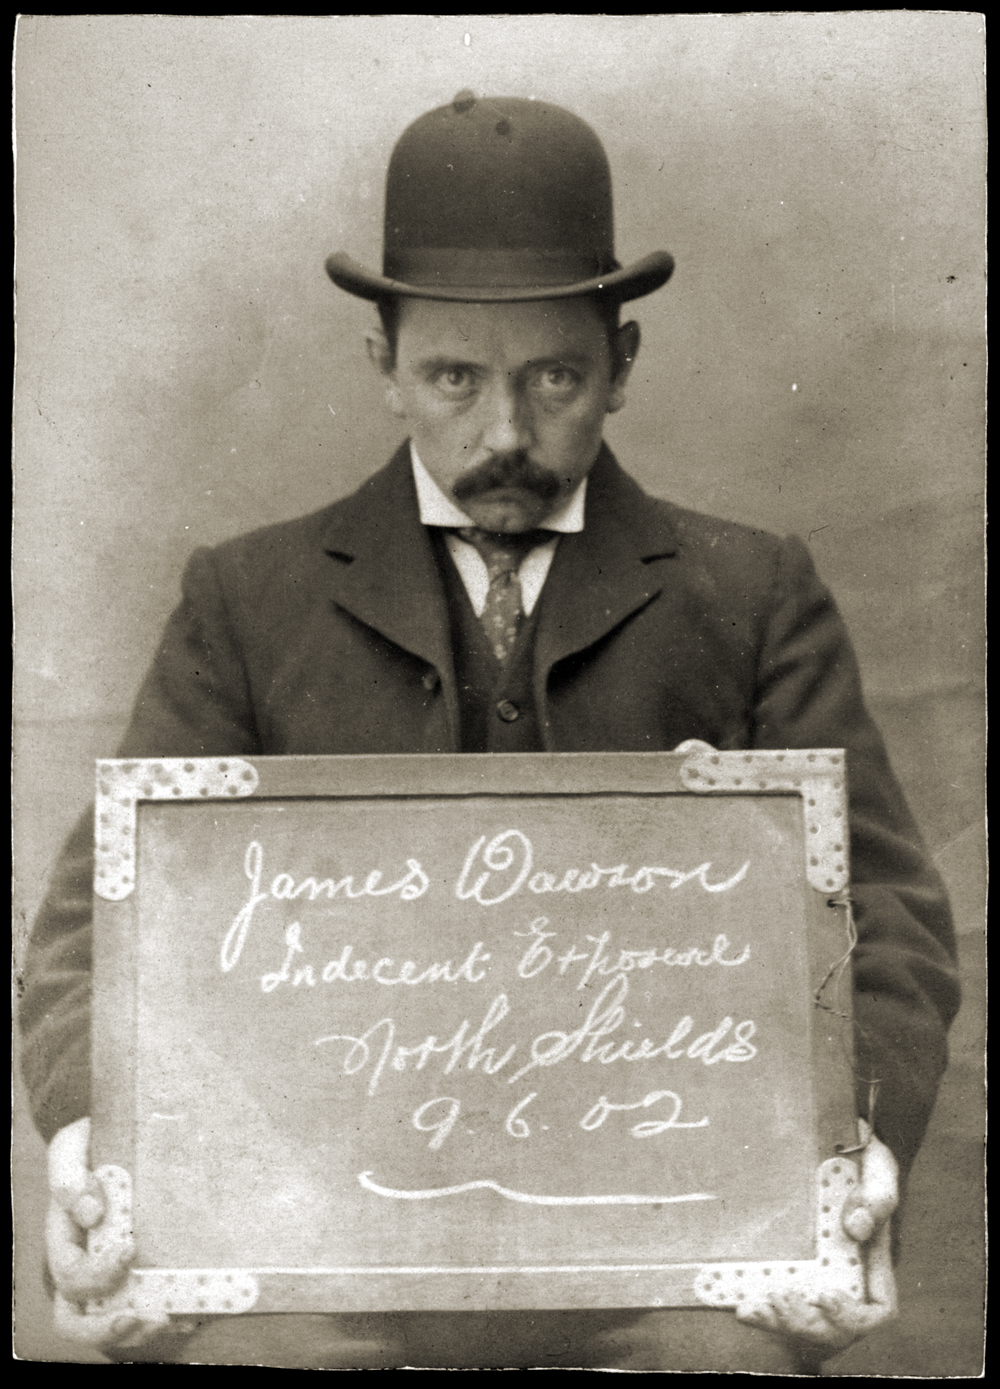 James Dawson
Indecent Exposure
North Shields
9. 6. 02